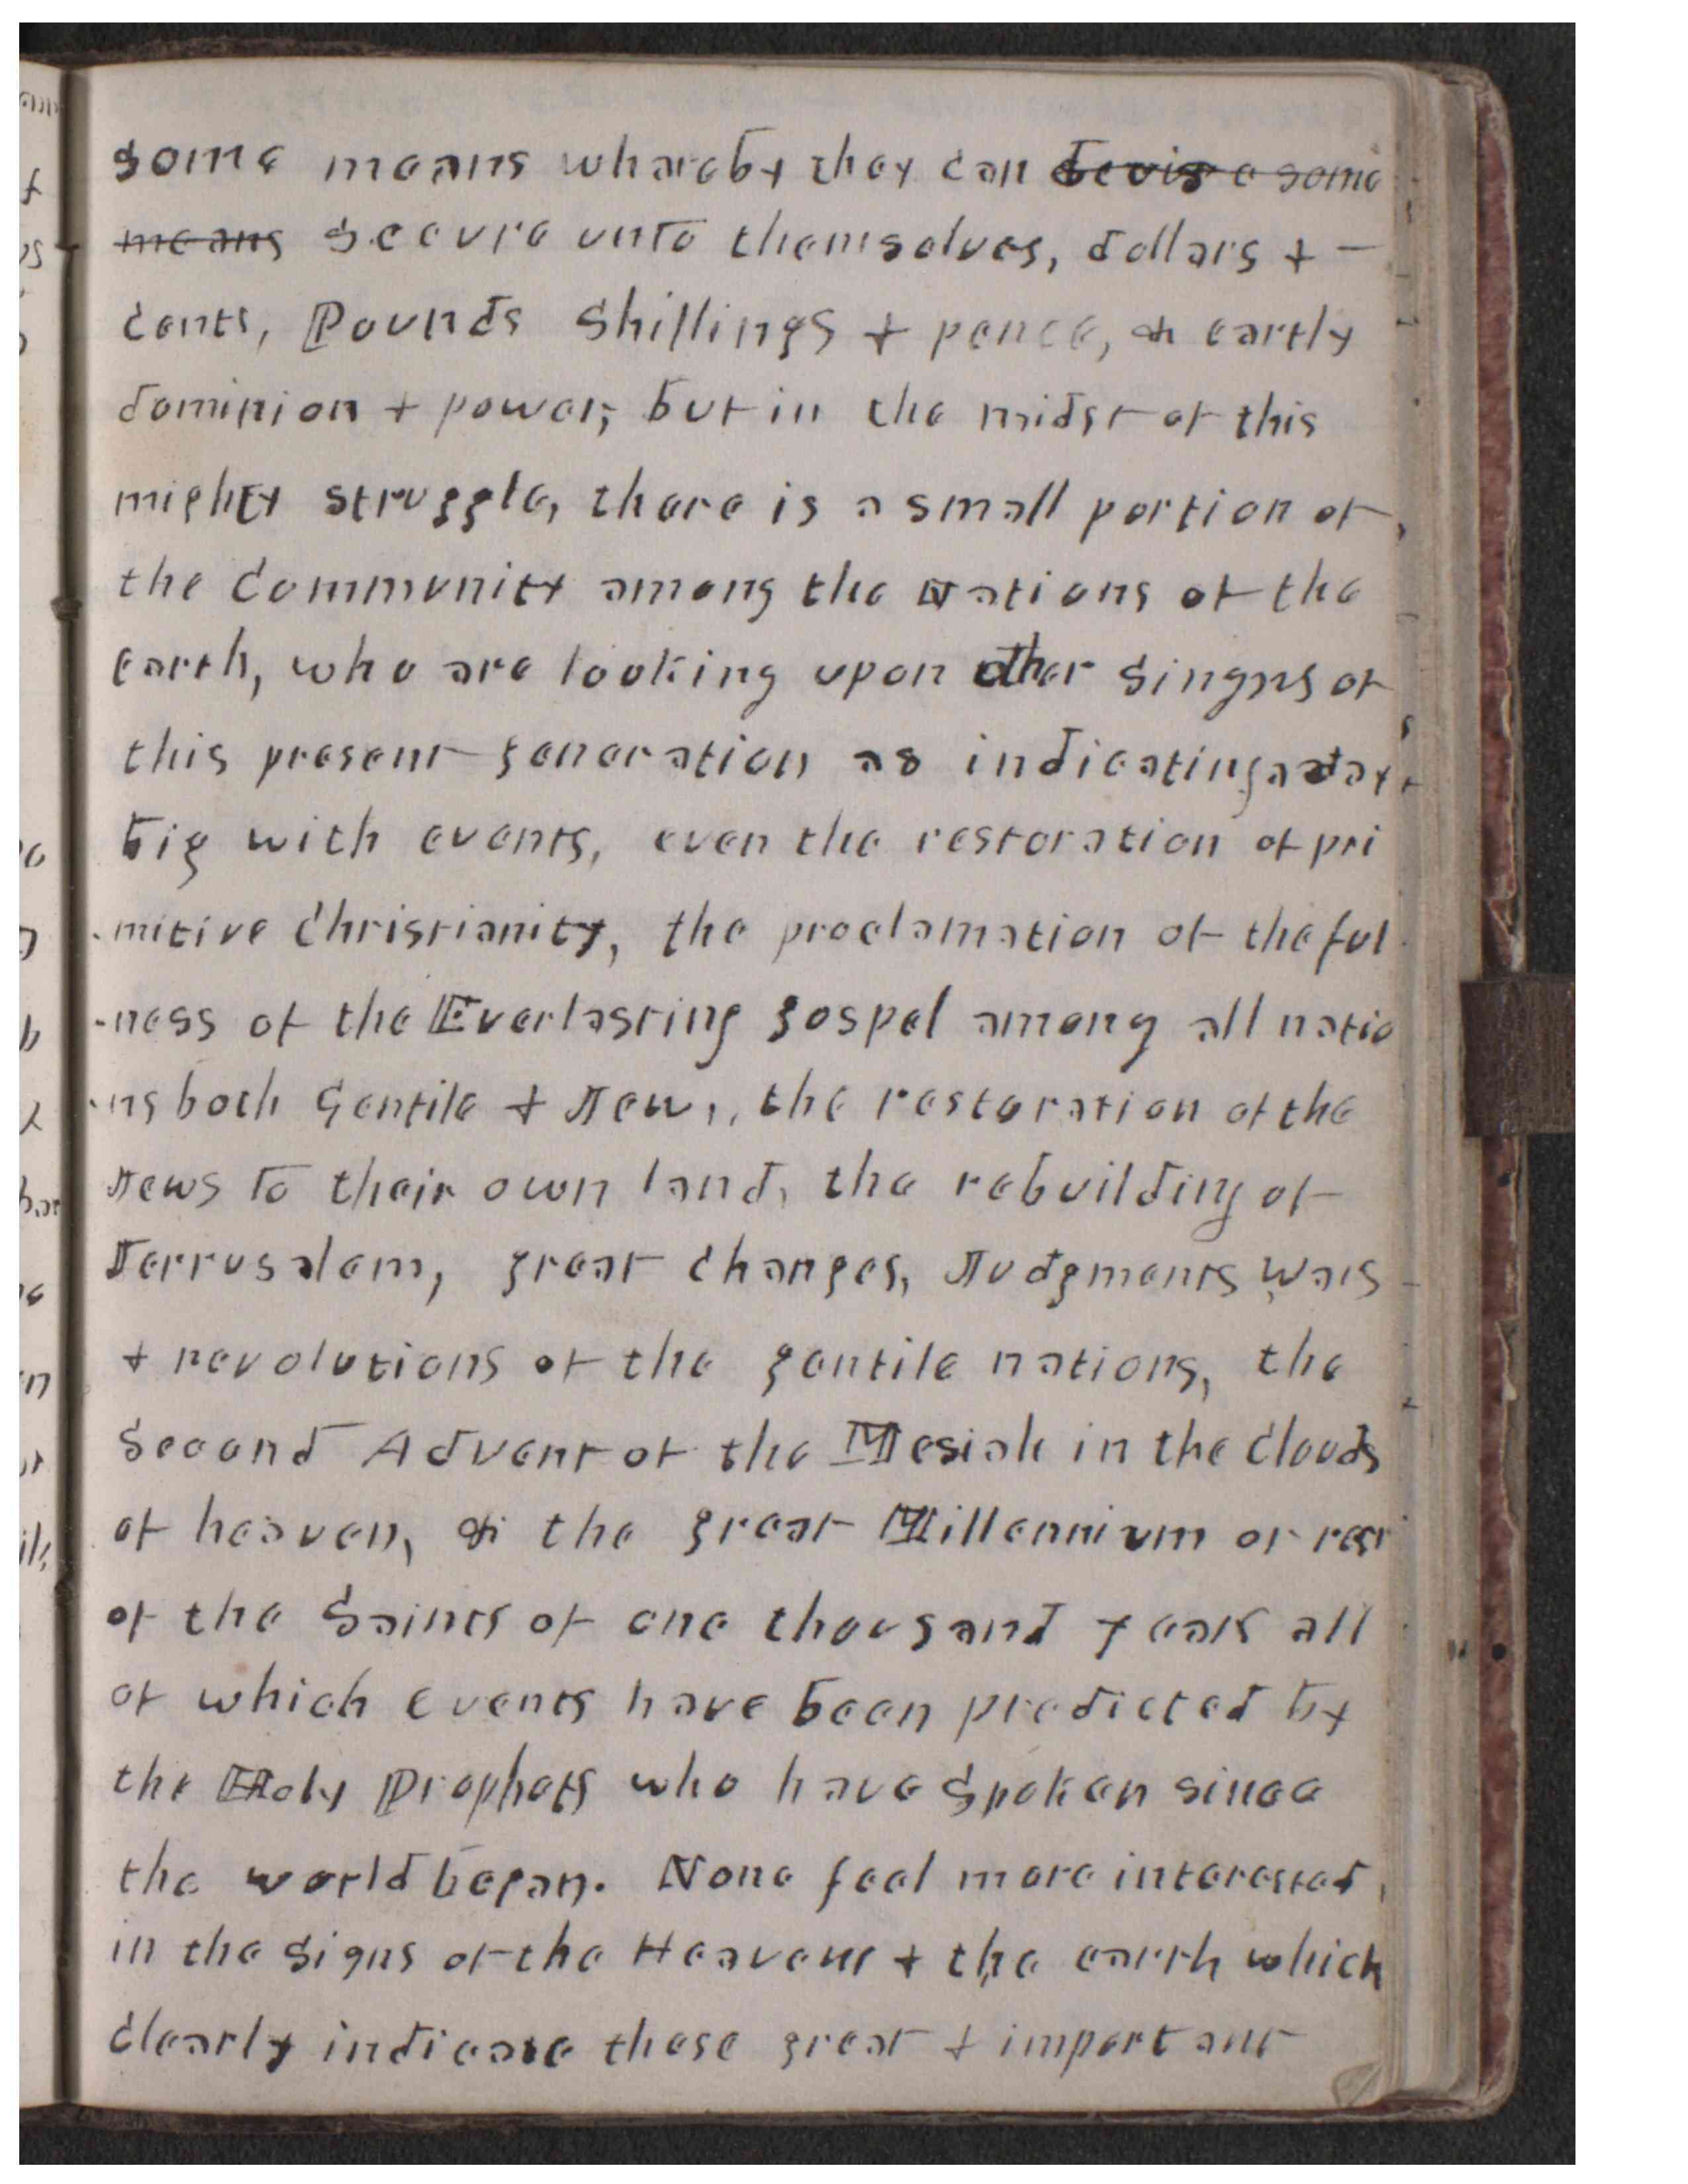 some means whareby they can ~~devise some~~
~~means~~ secure unto themselves, dollars + –
cents, Pounds Shillings + pence, & eartly
dominion + power, but in the midst of this
mighty struggle, there is a small portion of
the Community among the Nations of the
earth, who are looking upon other Singns of
this present generation as indicating a day
big with events, even the restoration of pri
-mitive Christianity, the proclamation of the ful
-ness of the Everlasting gospel among all natio
-ns both Gentile + Jew,, the restoration of the
Jews to their own land, the rebuilding of
Jerrusalem, great changes, Judgments wars
+ revolutions of the gentile nations, the
Second Advent of the Mesiah in the Clouds
of heaven, & the great Millennium or rest
of the Saints of one thousand years all
of which events have been predicted by
the Holy Prophets who have Spoken since
the world began. None feel more interested,
in the Signs of the Heavens + the earth which
Clearly indicate these great + important